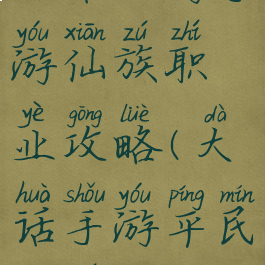 yóu xiān zú zhí
游仙族职
yè gōng lüè dà
业攻略(大
huà shǒu yóu píng mín
话手游平民